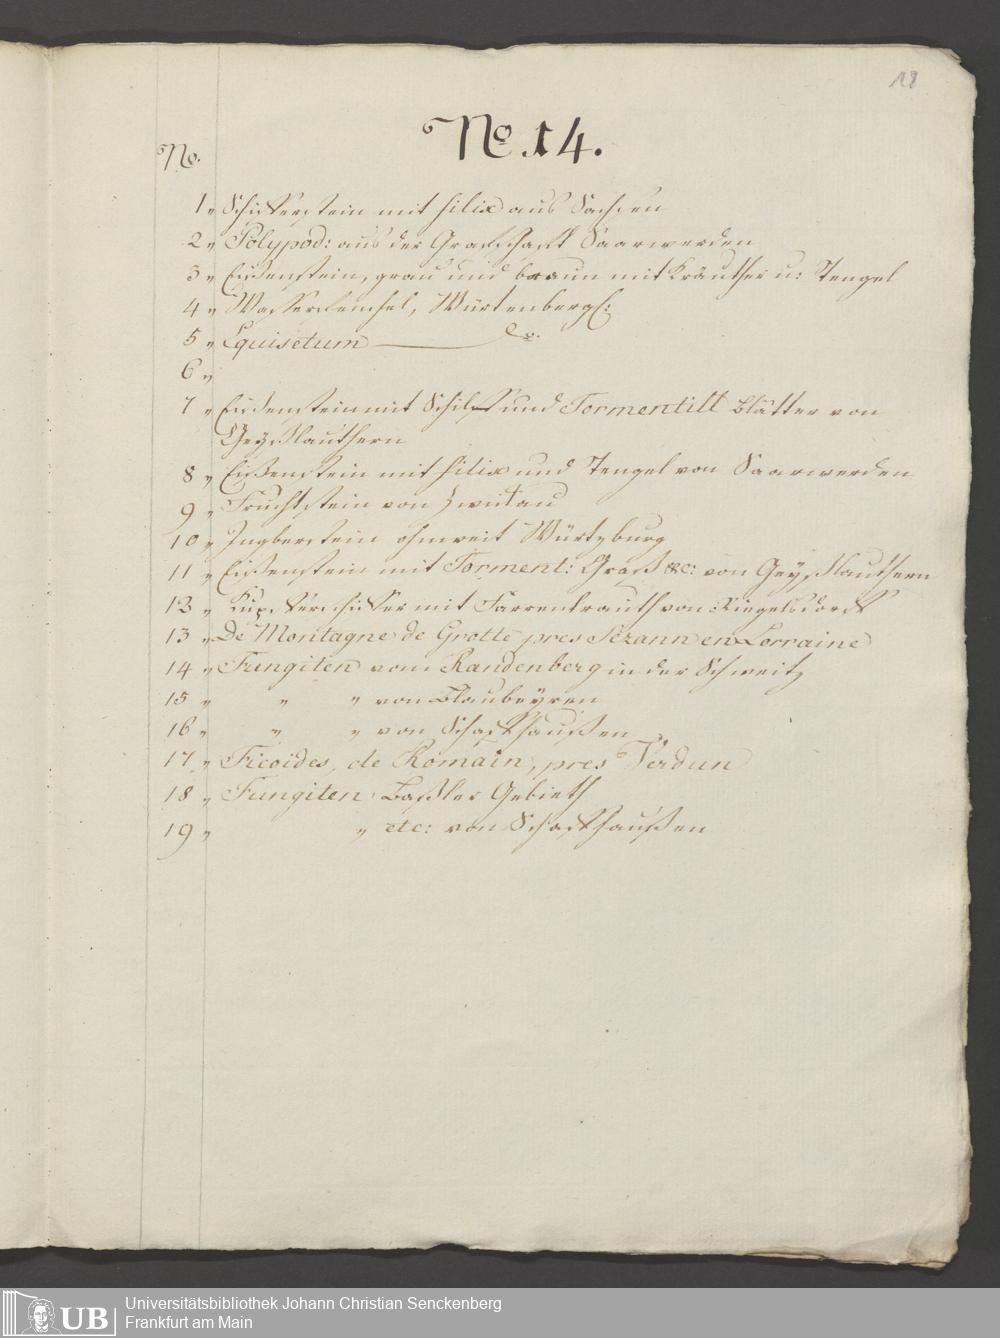 18
No. 14.
No.
1 " Schifferstein mit filix aus Sachsen
2 " Polypod: aus der Grafschaft Saarwerden
3 " Eisenstein, grau und braun mit Kräuther u: Stengel
4 " Wasserfenchel, Würtenbergs:
5 " Equisetum — do.
6 "
7 " Eisenstein mit Schilf und Tormentill Blätter von
Geyslauthern
8 " Eißenstein mit filix und Stengel von Saarwerden
9 " Fruchtstein von Zwickau
10 " Ingberstein ohnweit Würtzburg
11 " Eißenstein mit Torment: Graß &c: von Geyslauthern
12 " Kupferschiffer mit Farrenkrauth von Riegelsdorf
13 " De Montagne de Grotte pres Sezann en Lorraine
14 " Fungiten vom Randenberg in der Schweitz
15 " " " von Blaubeyren
16 " " " von Schaffhaußen
17 " Ficoides, de Romain, pres Verdun
18 " Fungiten Baßler Gebieth
19 " " etc: von Schaffhaußen
UB
Universitätsbibliothek Johann Christian Senckenberg
Frankfurt am Main